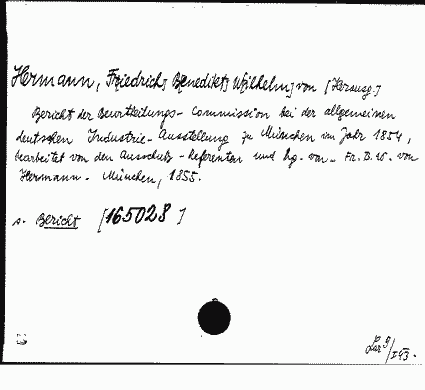 Hermann, F[riedrich] B[enedikt] W[ilhelm] von [Herausg.]
Bericht der Beurtheilungs-Commission bei der allgemeinen
deutschen Industrie-Ausstellung zu München im Jahr 1854,
bearbeitet von den Ausschuß-Referenten und hg. von Fr. B. W. von
Hermann. München, 1855.
s. Bericht [165028]